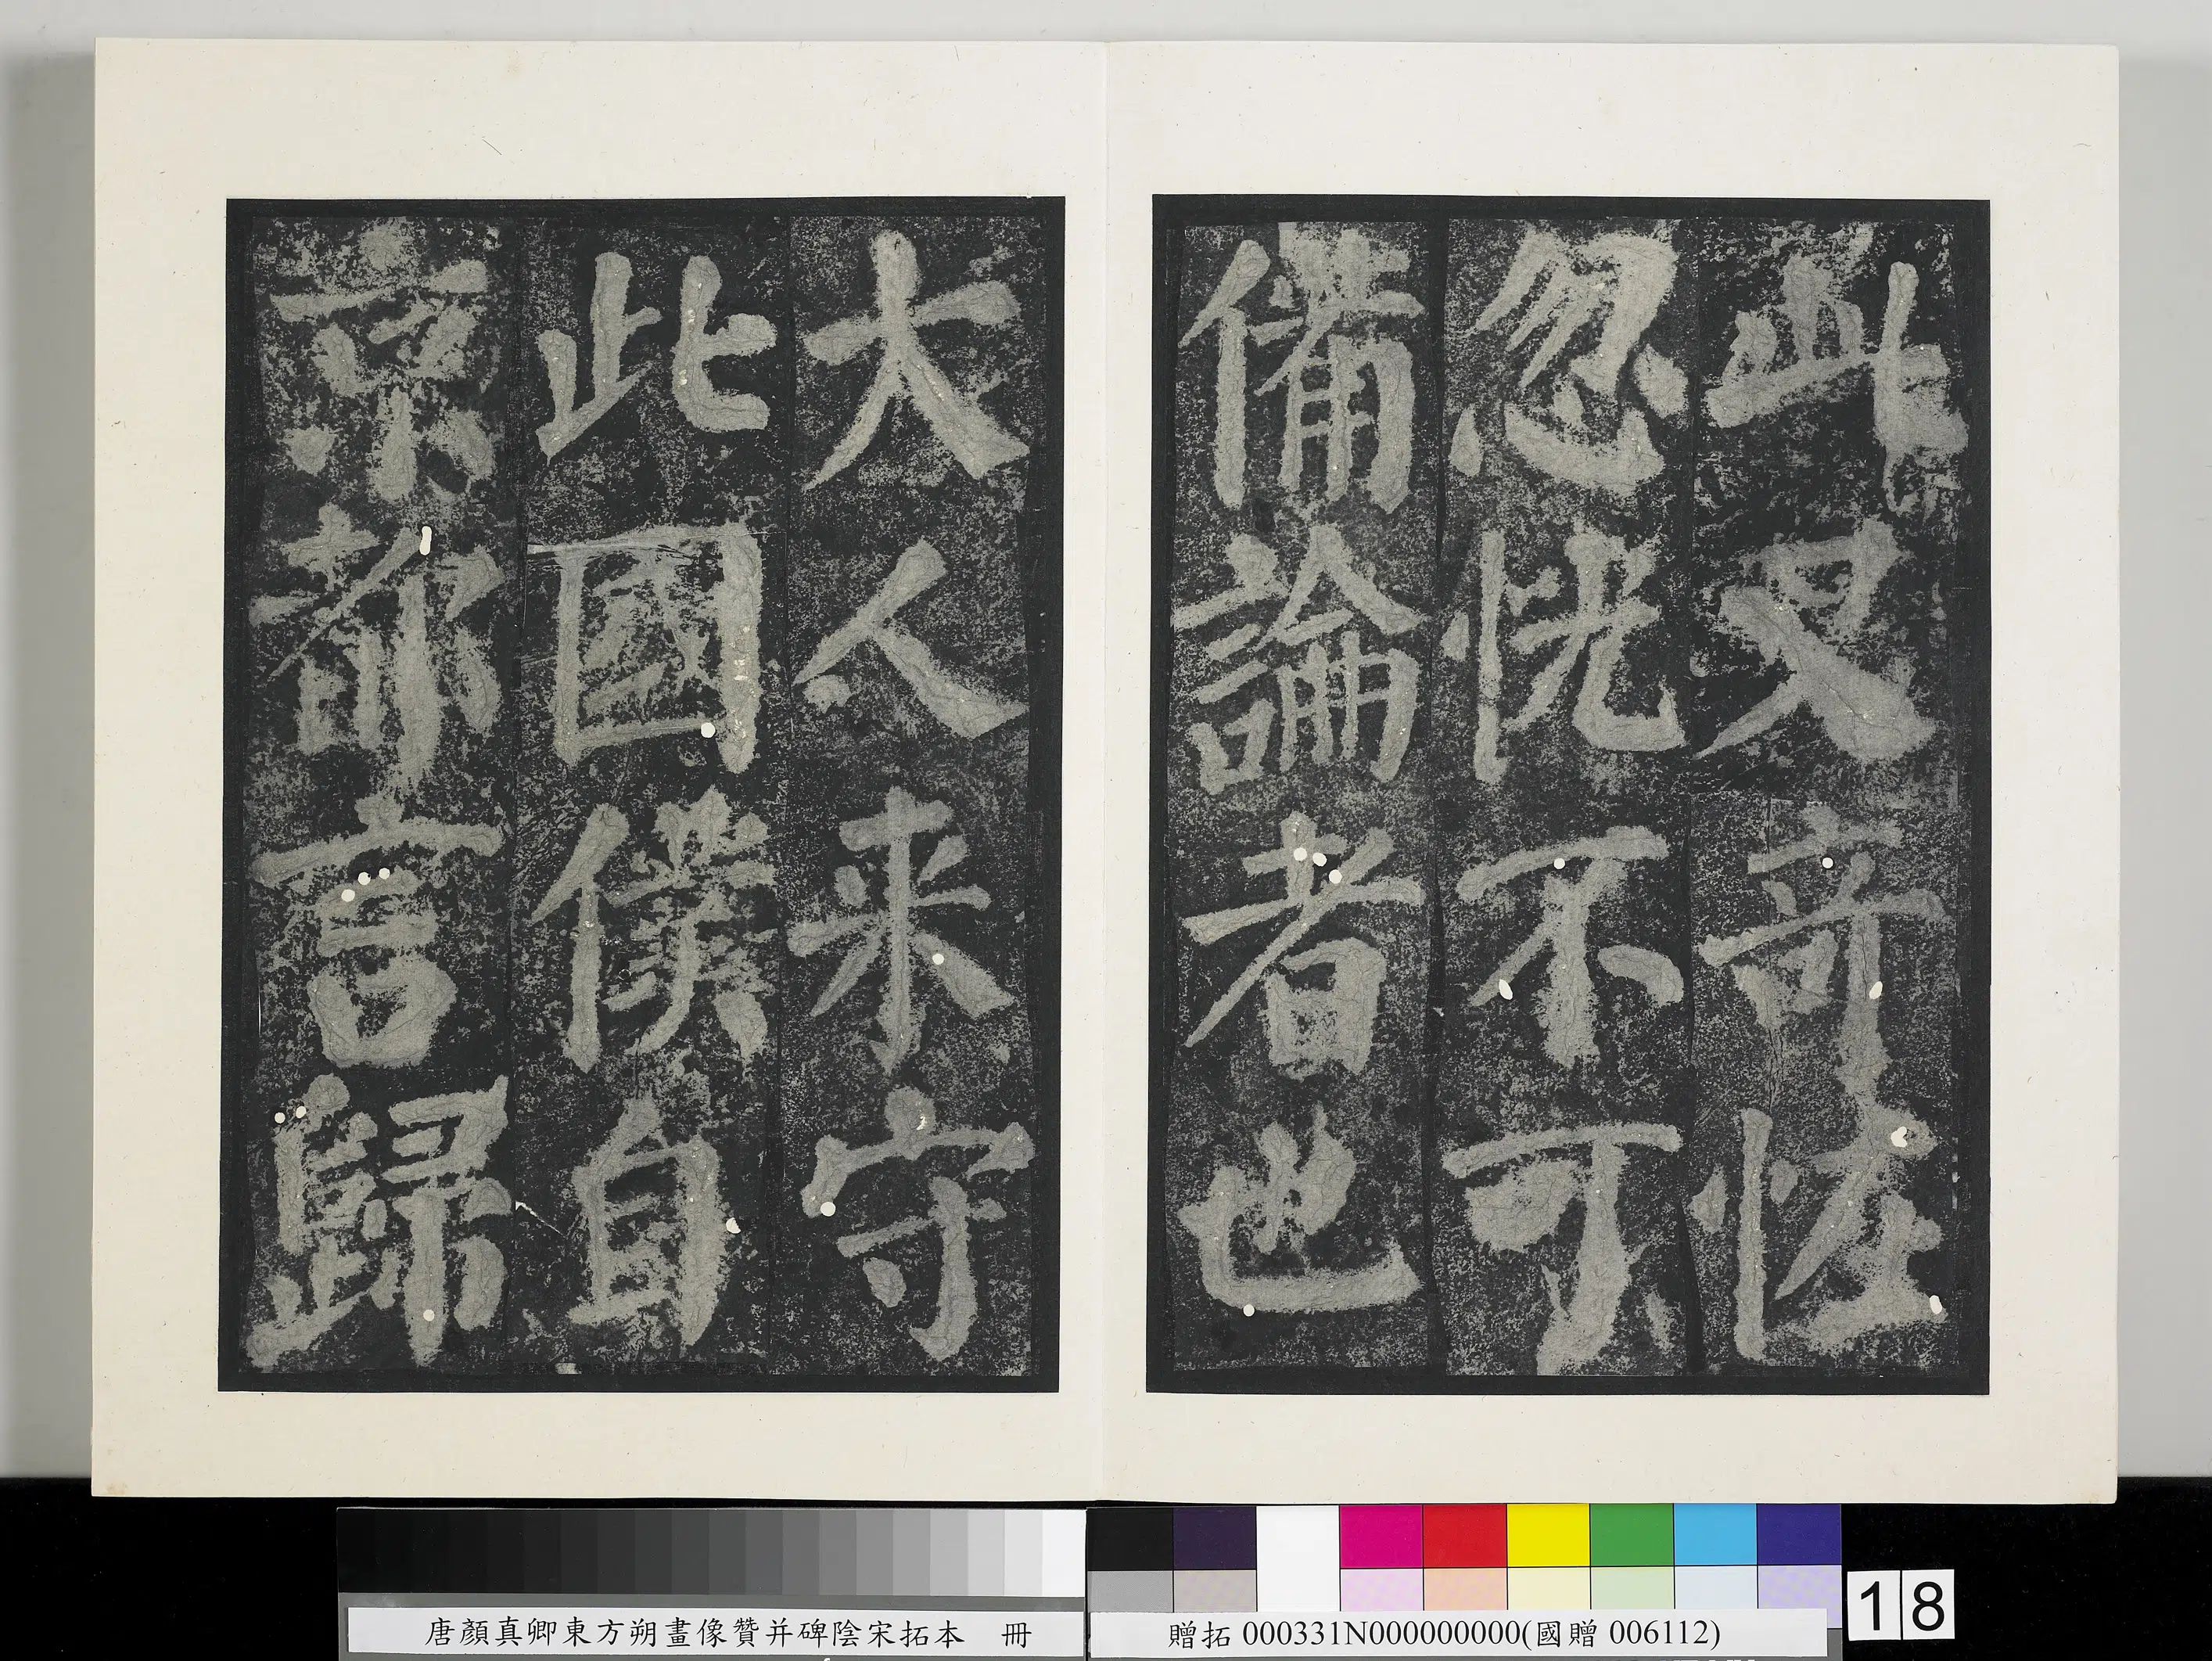 此又奇怪
忽恍不可
備論者也
大人来守
此國僕自
京都言歸
唐顏真卿東方朔畫像贊并碑陰宋拓本 冊
贈拓 000331N000000000(國贈 006112)
18